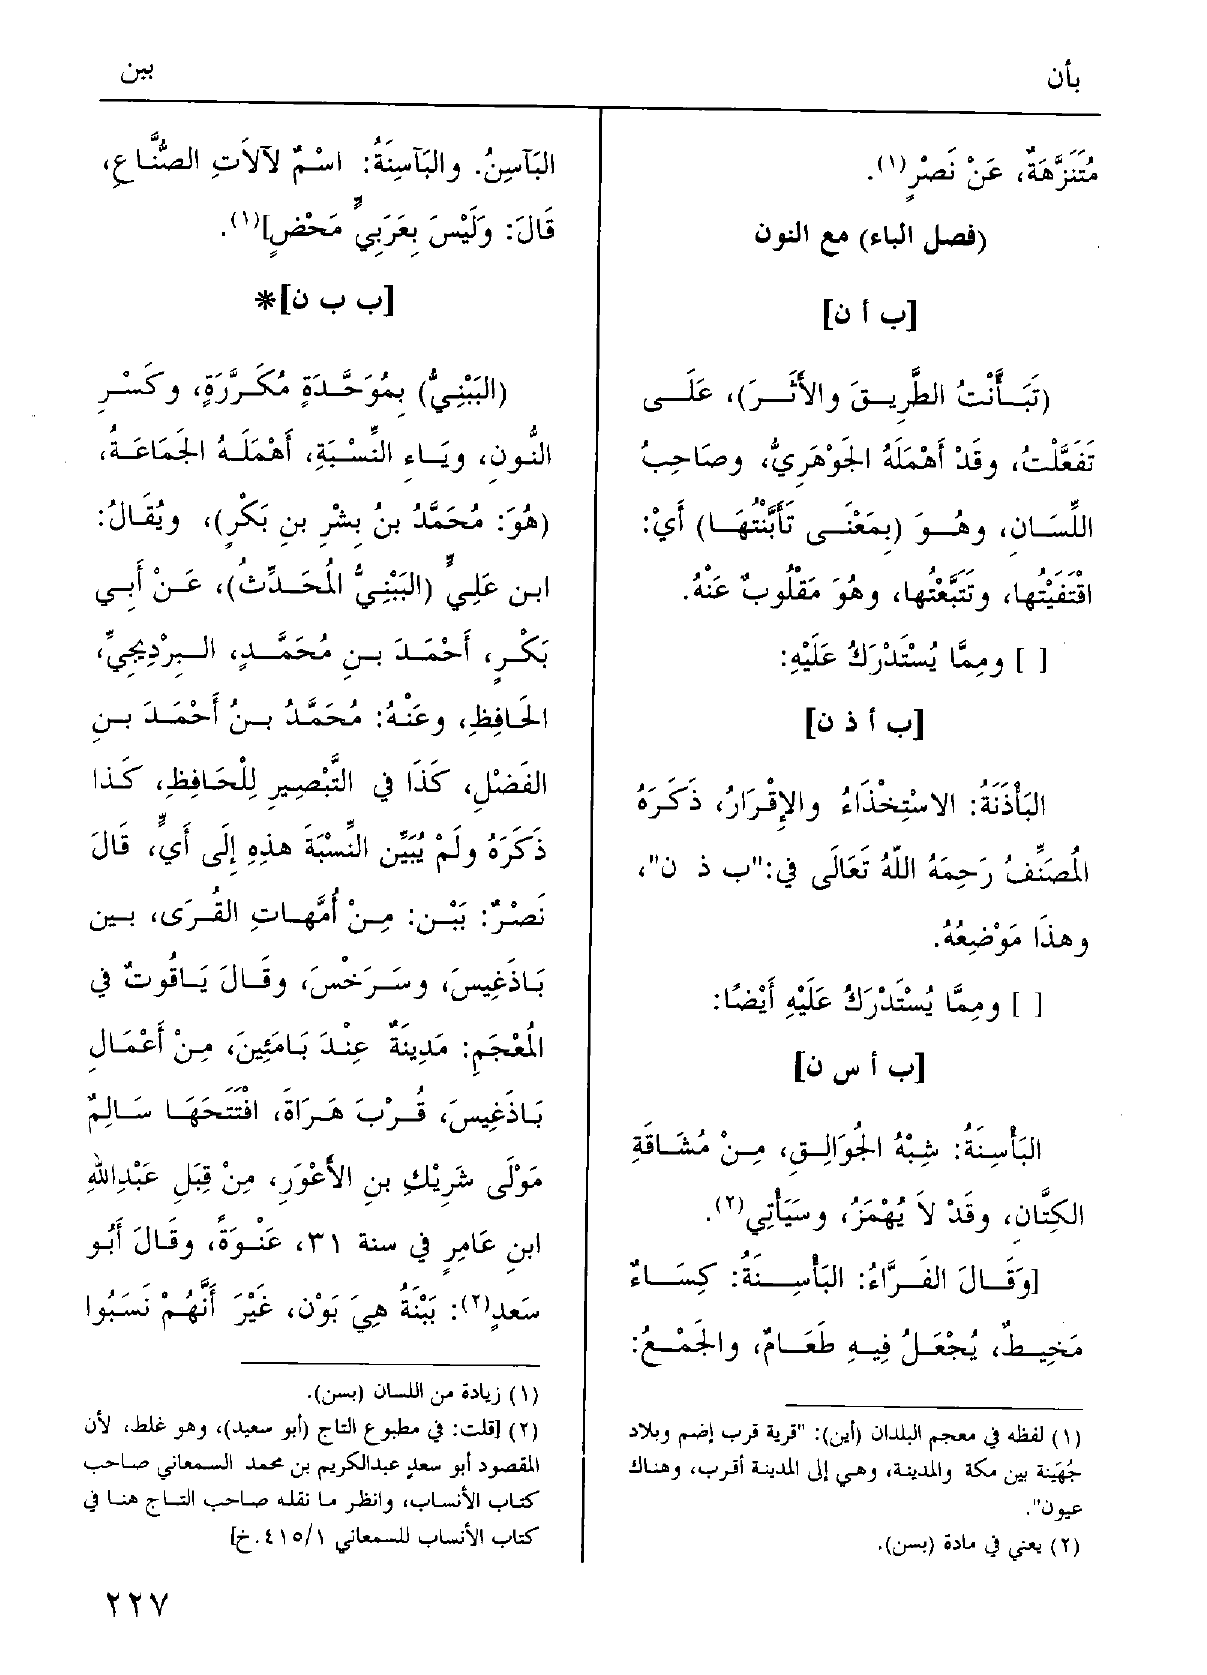 بأن
ببن
مُتَنَزَّهَةٌ، عَنْ نَصْرٍ(١).
(فصل الباء) مع النون
[ب أ ن]
(تَبَـأَّنْتُ الطَّرِيـقَ والأَثَـرَ)، عَلَـى
تَفَعَّلْتُ، وقَدْ أَهْمَلَهُ الجَوْهَرِيُّ، وصَاحِبُ
اللِّسَـانِ، وهُـوَ (بِمَعْنَـى تَأَبَّنْتُهَـا) أَيْ:
اقْتَفَيْتُها، وتَتَبَّعْتُها، وهُوَ مَقْلُوبٌ عَنْهُ.
[ ] ومِمَّا يُسْتَدْرَكُ عَلَيْهِ:
[ب أ ذ ن]
البَأْذَنَةُ: الاسْتِخْذَاءُ والإِقْرَارُ، ذَكَرَهُ
المُصَنِّفُ رَحِمَهُ اللهُ تَعَالَى في:"ب ذ ن"،
وهذَا مَوْضِعُهُ.
[ ] ومِمَّا يُسْتَدْرَكُ عَلَيْهِ أَيْضًا:
[ب أ س ن]
البَأْسِنَةُ: شِبْهُ الجُوَالِـقِ، مِـنْ مُشَـاقَةِ
الكِتَّانِ، وقَدْ لاَ يُهْمَزُ، وسَيَأْتِي(٢).
[وَقَـالَ الفَـرَّاءُ: البَأْسِـنَةُ: كِسَـاءٌ
مَخِيـطٌ، يُجْعَـلُ فِيـهِ طَعَـامٌ، والجَمْـعُ:
(١) لفظه في معجم البلدان (أين): "قرية قرب إضم وبلاد
جُهَينة بين مكة والمدينة، وهي إلى المدينة أقرب، وهناك
عيون".
(٢) يعني في مادة (بسن).
البَآسِنُ. والبَآسِنَةُ: اسْـمٌ لآلاَتِ الصُّنَّـاعِ،
قَالَ: وَلَيْسَ بِعَرَبِيٍّ مَحْضٍ](١).
[ب ب ن]*
(البَبْنِيُّ) بِمُوَحَّـدَةٍ مُكَـرَّرَةٍ، وكَسْـرِ
النُّونِ، ويَـاءِ النِّسْـبَةِ، أَهْمَلَـهُ الجَمَاعَـةُ،
(هُوَ: مُحَمَّدُ بنُ بِشْرِ بنِ بَكْرٍ)، ويُقَالُ:
ابن عَلِيٍّ (البَبْنِيُّ المُحَـدِّثُ)، عَـنْ أَبِي
بَكْـرٍ، أَحْمَـدَ بـنِ مُحَمَّـدٍ، الـبَرْدِيجِيِّ،
الحَافِظِ، وعَنْهُ: مُحَمَّدُ بـنُ أَحْمَـدَ بـنِ
الفَضْلِ، كَذَا في التَّبْصِيرِ لِلْحَافِظِ، كَـذا
ذَكَرَهُ ولَمْ يُبَيِّن النِّسْبَةَ هذِهِ إِلَى أَيٍّ، قَالَ
نَصْرٌ: بَبْـن: مِـنْ أُمَّهـاتِ القُرَى، بـين
بَـاذَغِيسَ، وسَـرَخْسَ، وقَـالَ يَـاقُوتٌ في
المُعْجَمِ: مَدِينَةٌ عِنْـدَ بَـامَئِينَ، مِـنْ أَعْمَـالِ
بَـاذَغِيسَ، قُـرْبَ هَـرَاةَ، افْتَتَحَهَـا سَـالِمٌ
مَوْلَى شَرِيْكِ بنِ الأَعْوَرِ، مِنْ قِبَلِ عَبْدِاللهِ
ابنِ عَامِرٍ في سنة ٣١، عَنْـوَةً، وقَالَ أَبُو
سَعدٍ(٢): بَبْنَةُ هِيَ بَوْن، غَيْرَ أَنَّهُمْ نَسَبُوا
(١) زيادة من اللسان (بسن).
(٢) [قلت: في مطبوع التاج (أبو سعيد)، وهو غلط، لأن
المقصود أبو سعدٍ عبدالكريم بن محمد السمعاني صاحب
كتاب الأنساب، وانظر ما نقله صاحب التاج هنا في
كتاب الأنساب للسمعاني ٤١٥/١.خ]
٢٢٧